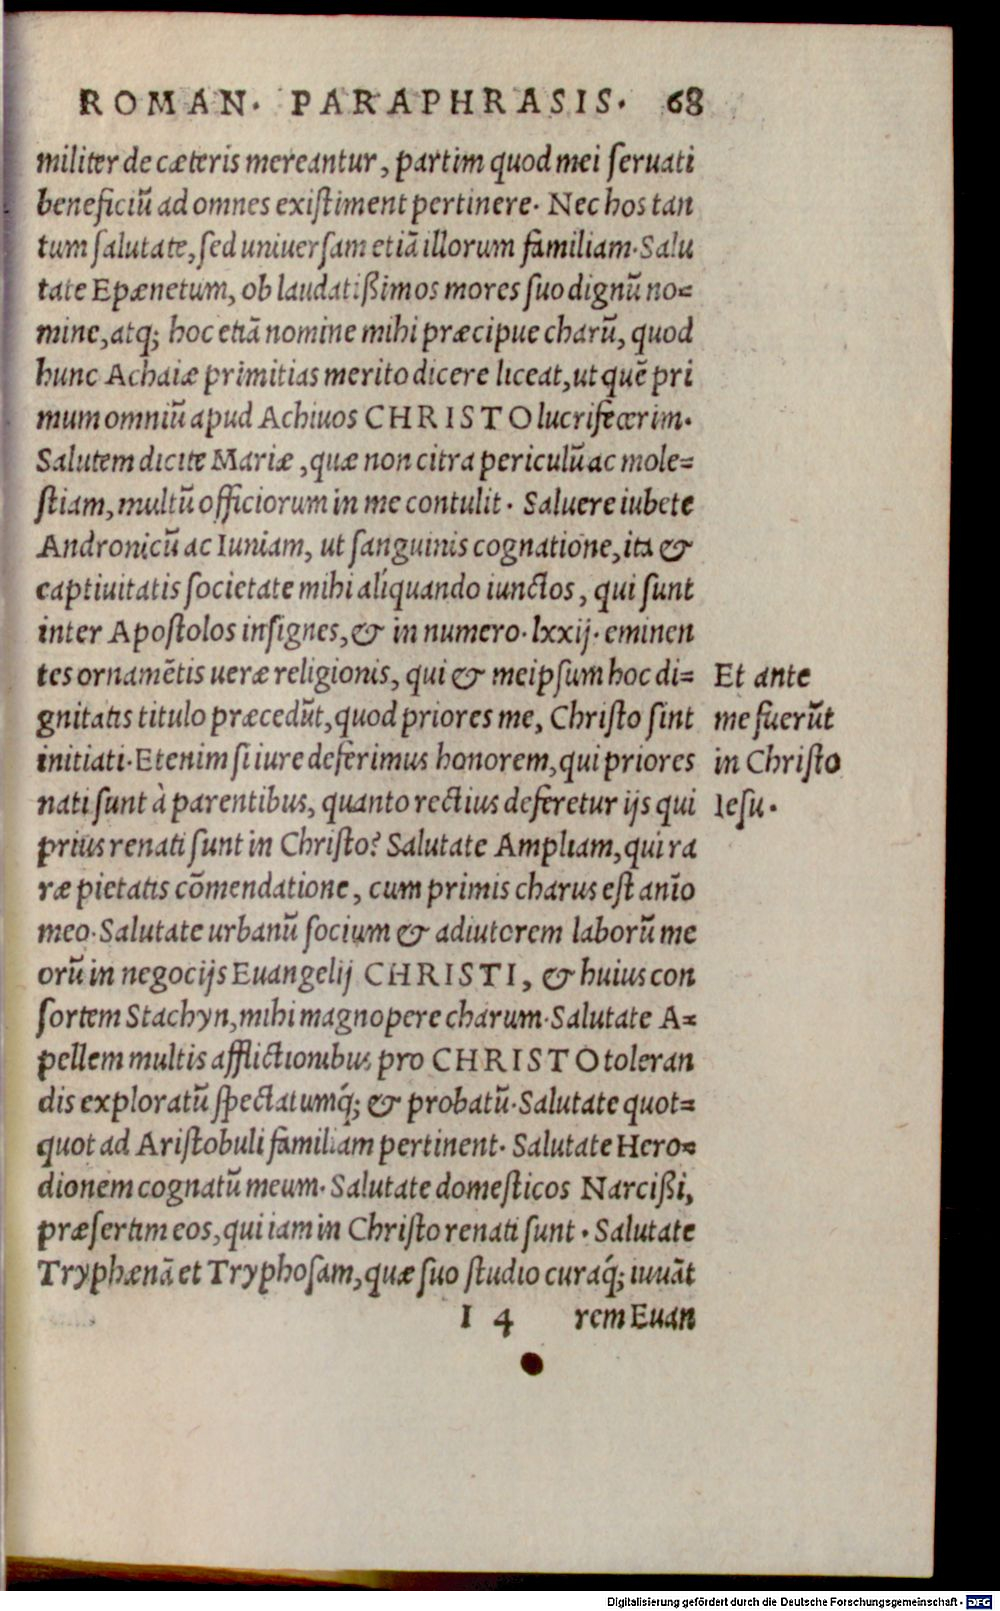 ROMAN. PARAPHRASIS. 68
militer de cæteris mereantur, partim quod mei seruati
beneficiū ad omnes existiment pertinere. Nec hos tan
tum salutate, sed uniuersam etiā illorum familiam. Salu
tate Epænetum, ob laudatißimos mores suo dignū no=
mine, atq; hoc etiā nomine mihi præcipue charū, quod
hunc Achaiæ primitias merito dicere liceat, ut quē pri
mum omniū apud Achiuos CHRISTO lucrifecerim.
Salutem dicite Mariæ, quæ non citra periculū ac mole=
stiam, multū officiorum in me contulit. Saluere iubete
Andronicū ac Iuniam, ut sanguinis cognatione, ita &
captiuitatis societate mihi aliquando iunctos, qui sunt
inter Apostolos insignes, & in numero. lxxij. eminen
tes ornamētis ueræ religionis, qui & meipsum hoc di=
gnitatis titulo præcedūt, quod priores me, Christo sint
initiati. Etenim si iure deferimus honorem, qui priores
nati sunt à parentibus, quanto rectius deferetur ijs qui
prius renati sunt in Christo? Salutate Ampliam, qui ra
ræ pietatis cōmendatione, cum primis charus est anīo
meo. Salutate urbanū socium & adiutorem laborū me
orū in negocijs Euangelij CHRISTI, & huius con
sortem Stachyn, mihi magnopere charum. Salutate A=
pellem multis afflictionibus pro CHRISTO toleran
dis exploratū spectatumq́; & probatū. Salutate quot=
quot ad Aristobuli familiam pertinent. Salutate Hero=
dionem cognatū meum. Salutate domesticos Narcißi,
præsertim eos, qui iam in Christo renati sunt. Salutate
Tryphænā et Tryphosam, quæ suo studio curaq́; iuuāt
I 4 rem Euan
Et ante
me fuerūt
in Christo
Iesu.
Digitalisierung gefördert durch die Deutsche Forschungsgemeinschaft - DFG